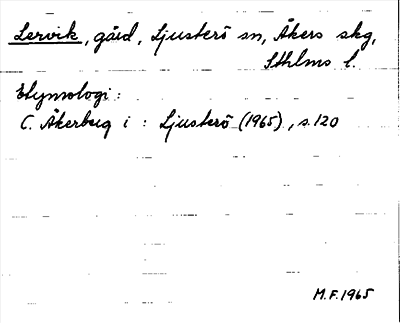 Lervik, gård, Ljusterö sn, Åkers skg,
Sthlms l.
Etymologi:
C. Åkerberg i : Ljusterö (1965), s. 120
M.F. 1965